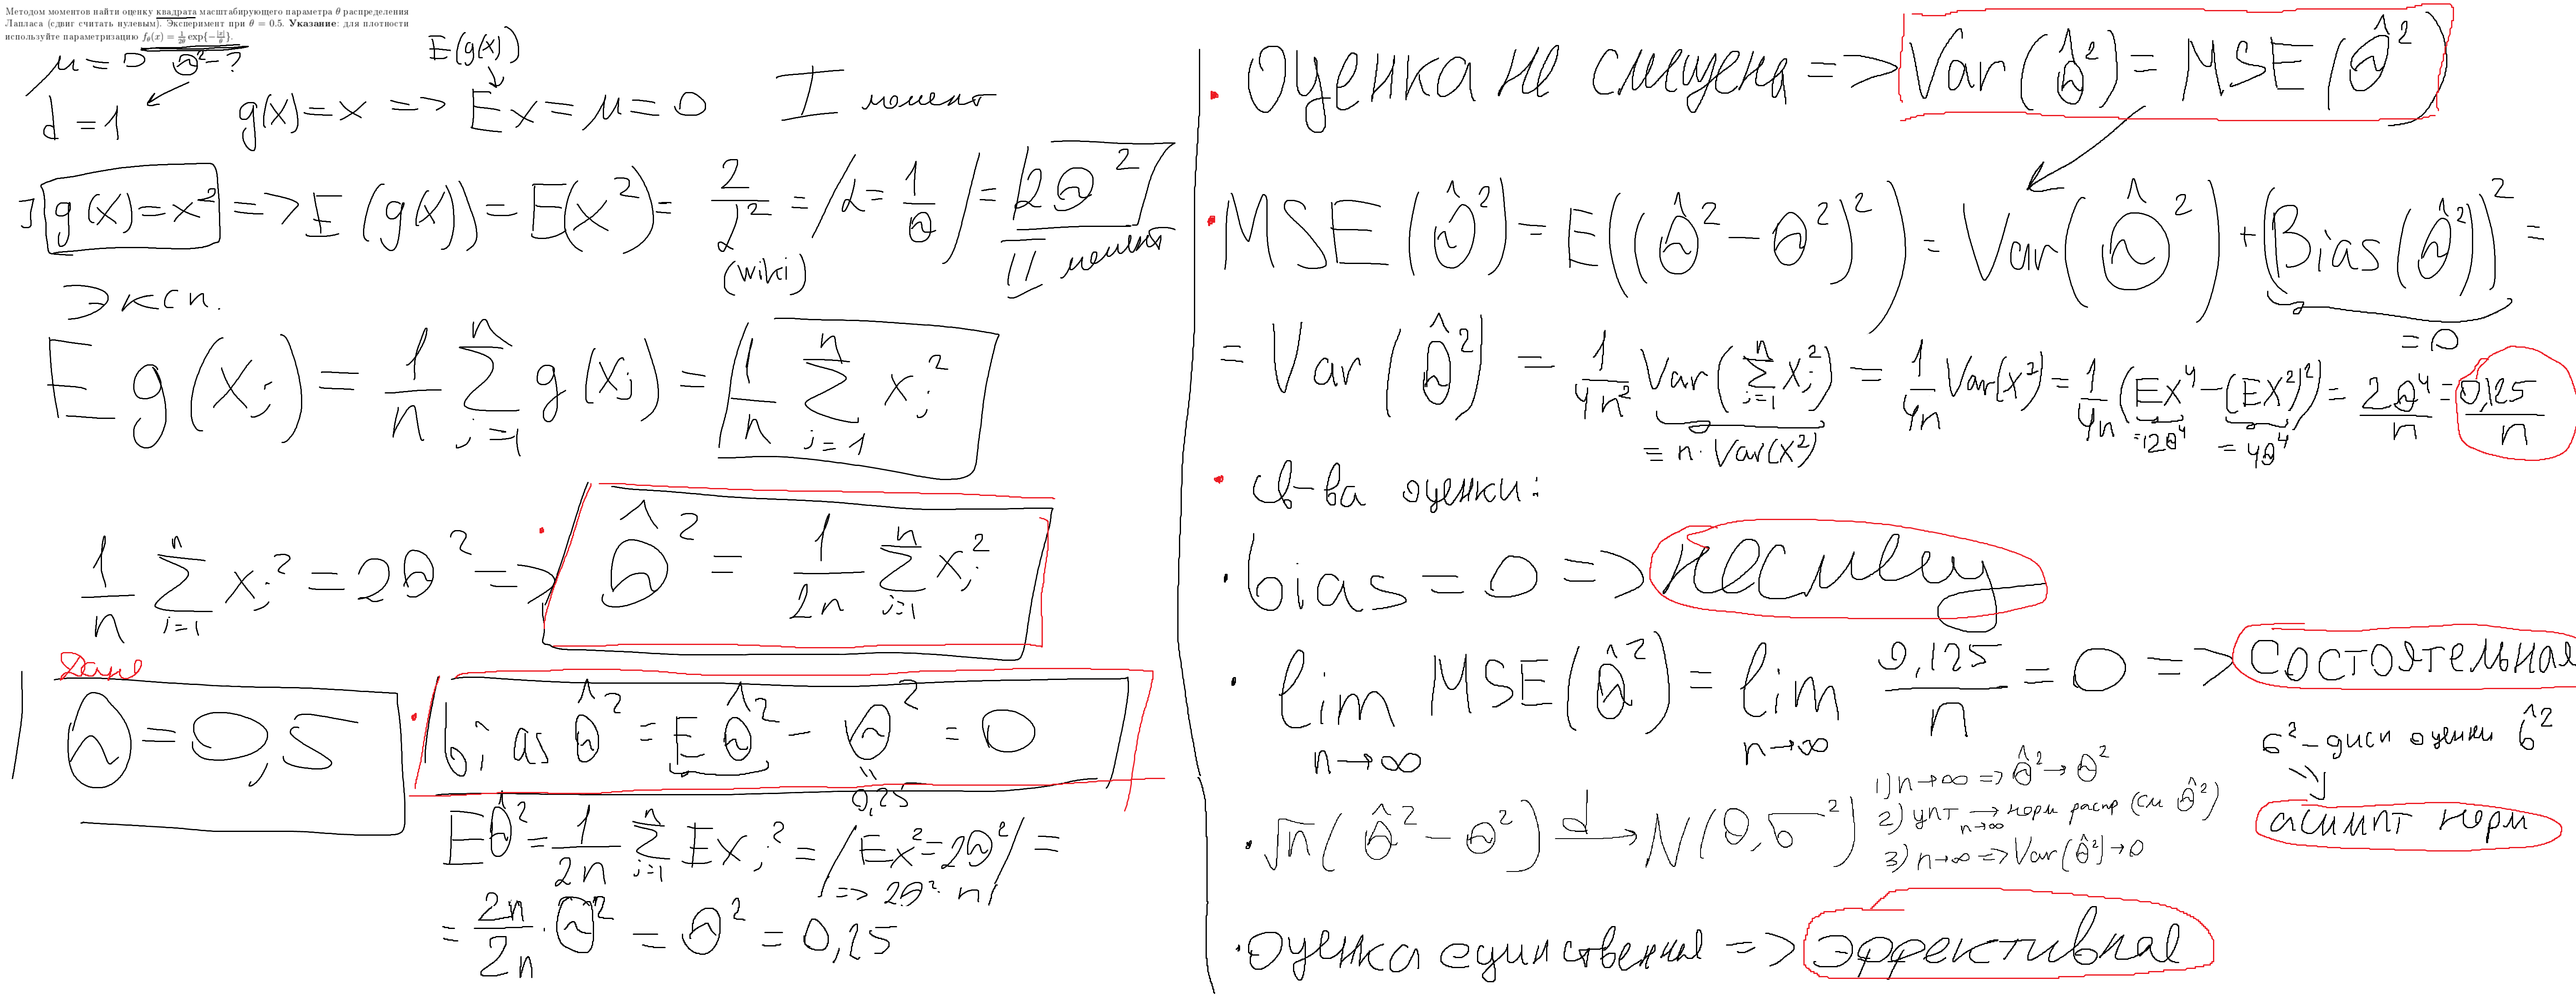 Методом моментов найти оценку квадрата масштабирующего параметра θ распределения
Лапласа (сдвиг считать нулевым). Эксперимент при θ = 0.5. Указание: для плотности
используйте параметризацию f_θ(x) = 1/(2θ) exp{−|x|/θ}.
μ = 0 θ² − ?
E(g(x))
d = 1 g(x) = x => Ex = μ = 0 I момент
] g(x) = x² => E(g(x)) = E(x²) = 2/α² = /α = 1/θ/ = 2θ²
(wiki) II момент
Эксп.
E g(x_i) = 1/n Σ_{i=1}^n g(x_i) = 1/n Σ_{i=1}^n x_i²
1/n Σ_{i=1}^n x_i² = 2θ² => θ̂² = 1/(2n) Σ_{i=1}^n x_i²
Дано
θ = 0,5
bias θ̂² = Eθ̂² − θ² = 0
0,25
Eθ̂² = 1/(2n) Σ_{i=1}^n Ex_i² = /Ex² = 2θ²/ =
=> 2θ² · n
= 2n/2n · θ² = θ² = 0,25
Оценка не смещена => Var(θ̂²) = MSE(θ̂²)
MSE(θ̂²) = E((θ̂² − θ²)²) = Var(θ̂²) + (Bias(θ̂²))² =
= 0
= Var(θ̂²) = 1/(4n²) Var(Σ_{i=1}^n x_i²) = 1/(4n) Var(x²) = 1/(4n) (EX⁴ − (EX²)²) = 2θ⁴/n = 0,125/n
= n · Var(x²) =12θ⁴ = 4θ⁴
св-ва оценки:
bias = 0 => несмещ
lim_{n→∞} MSE(θ̂²) = lim_{n→∞} 0,125/n = 0 => состоятельная
σ² − дисп оценки σ̂²
√n(θ̂² − θ²) →d N(0, σ²)
1) n→∞ => θ̂² → θ²
2) цпт →_{n→∞} норм распр (см θ̂²)
3) n→∞ => Var(θ̂²) → 0
асимпт норм
оценка единственная => эффективная